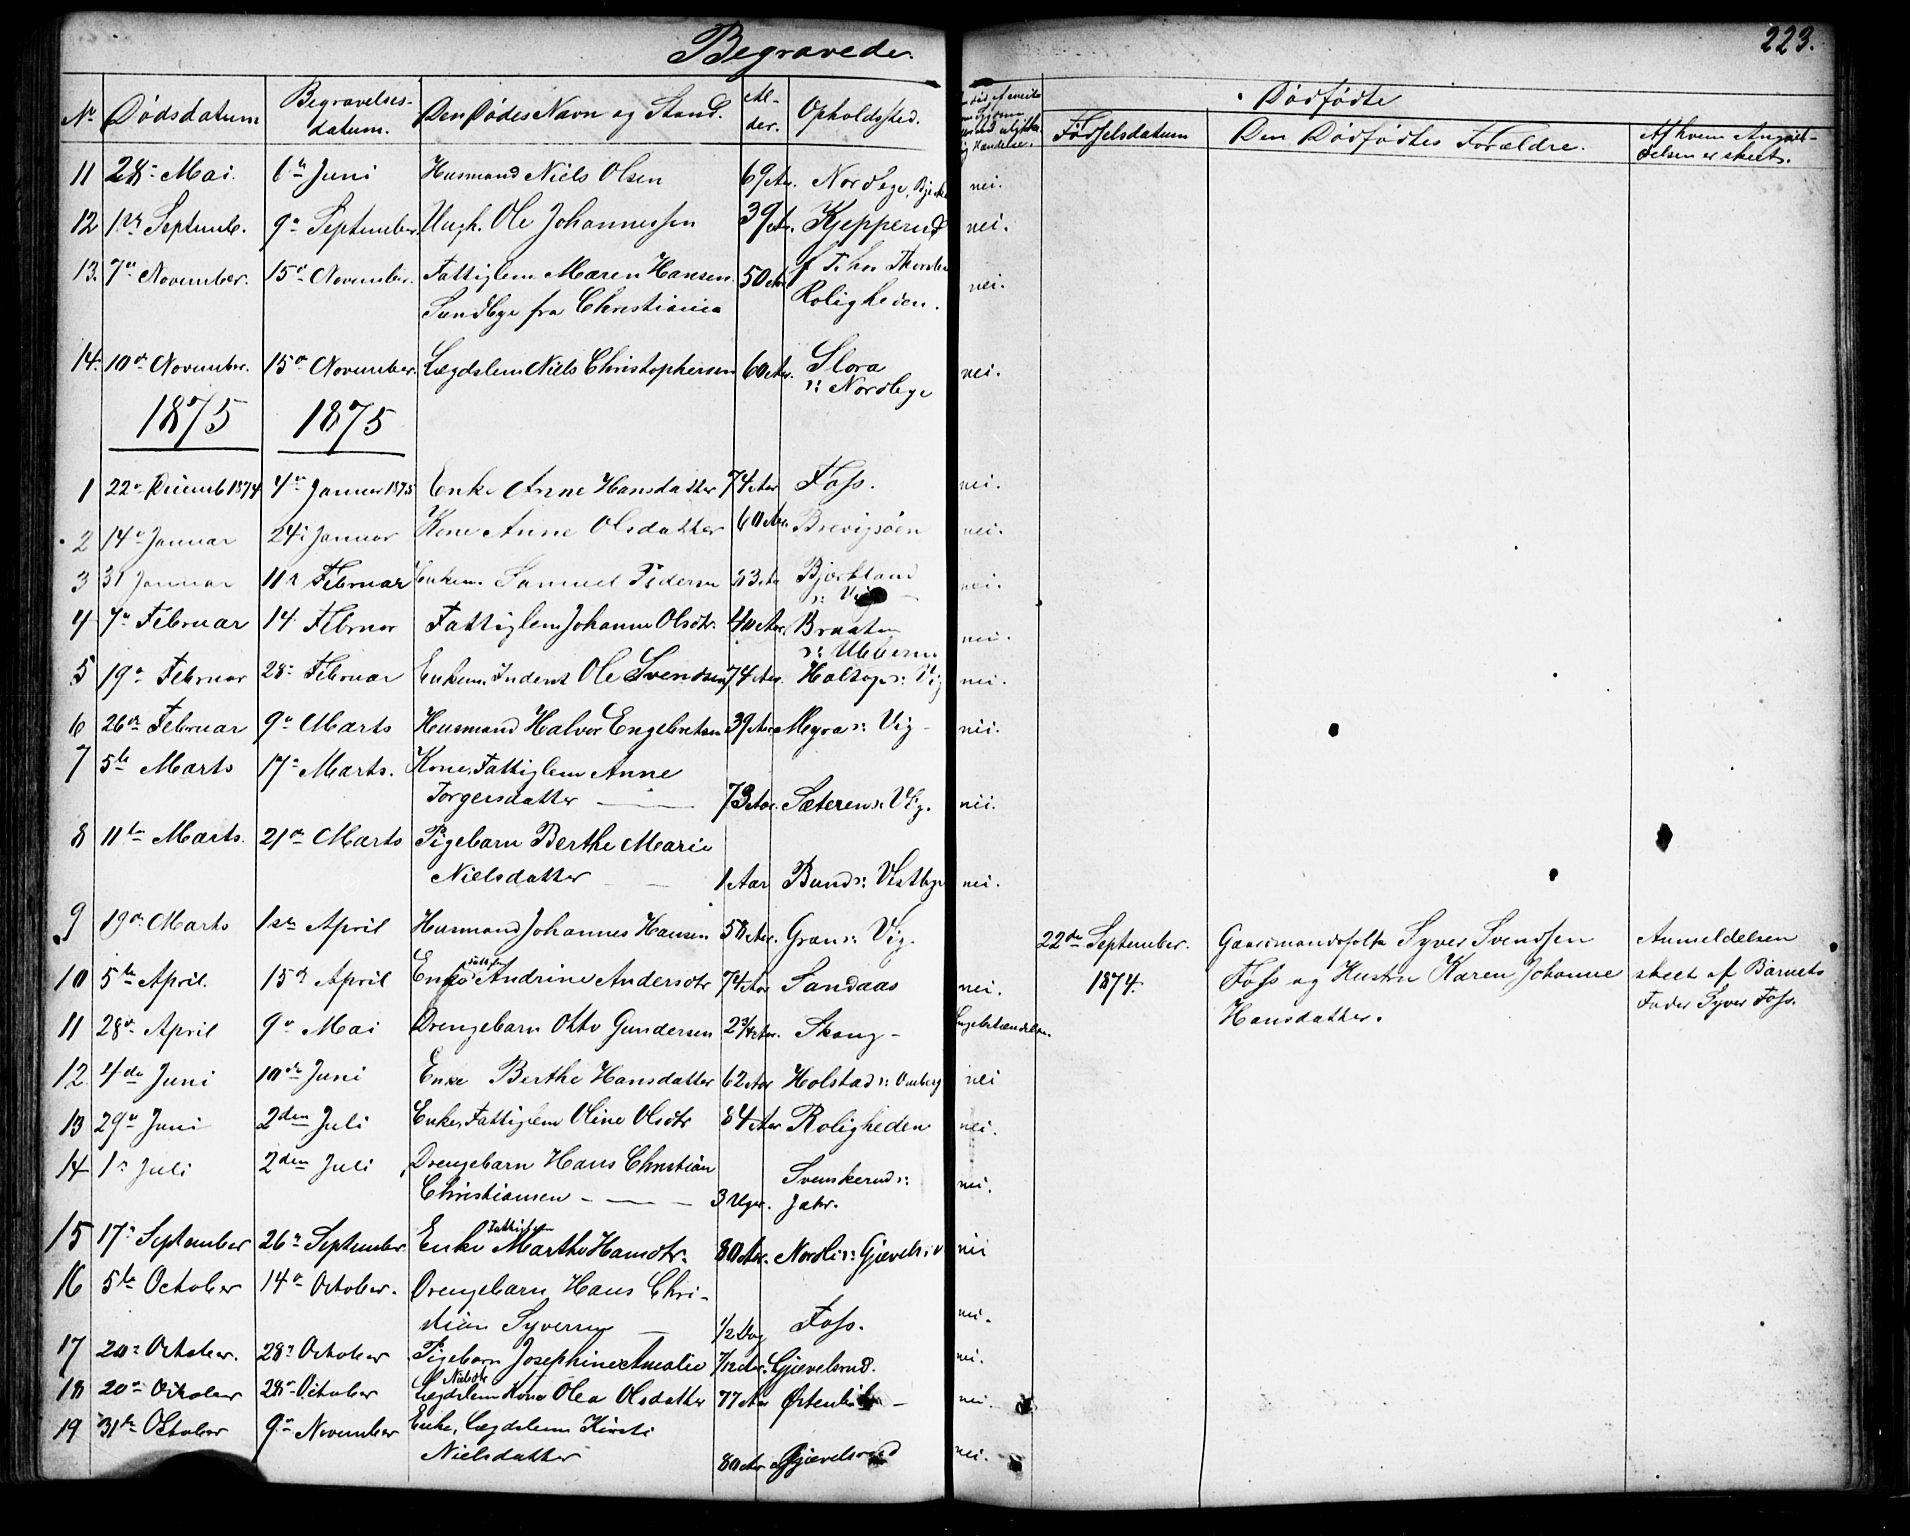 Begravede.
223.
No Dødsdatum Begravelses-datum. Den Dødes Navn og Stand. Al-der. Opholdssted.
Dødfødte
Fødselsdatum Den Dødfødtes Forældre. Af hvem Anmel-delsen er skeet.
11 28de Mai. 6te Juni Husmand Niels Olsen 69 Aar. Nordbye, nei.
12 1ste Septemb. 9de September. Ungk. Ole Johannessen 39 Aar. Kjepperud nei.
13. 7de November. 15de November. Fattiglem Maren Hansen 50 Aar
Sundbye fra Christiania Roligheden. nei.
14. 10de November. 15de November. Lægdslem Niels Christophersen 60 Aar. Slora
s: Nordbye nei.
1875 1875
1 22de Decemb 1874 4de Januar 1875 Enke Anne Hansdatter 74 Aar Foss. nei.
2 14de Januar 24de Januar Kone Anne Olsdatter 60 Aar. Brevigsøen nei.
3 31 Januar 11te Februar Enkem. Samuel Pedersen Aar Bjørkland nei.
4 7de Februar 14 Februar Fattiglem Johanne Olsdtr. 40 Aar. Braaten nei.
5 19de Februar 28de Februar Enkem. Inderst Ole Svendsen 74 Aar. Holtop s: Vig nei.
6 26de Februar 9de Marts Husmand Halvor Engebretsen 39 Aar Myra s: Vig - nei.
7 5te Marts 17de Marts. Kone, Fattiglem Anne
Torgersdatter — 73 Aar. Sæteren s: Vig. nei.
8 11te Marts. 21de Marts Pigebarn Berthe Marie
Nielsdatter — 1 Aar Bund s: Vestbye nei.
9 19de Marts 1ste April Husmand Johannes Hansen 58 Aar. Gran s: Vig.
22de September. Gaardmandsfolk Syver Svendsen Anmeldelsen
10 5te April. 15de April Enke Fattiglem Andrine Andersdtr 74 Aar Sandaas nei.
1874. Foss og Hustru Karen Johanne skeet af Barnets
Hansdatter. Fader Syver Foss.
11 28de April 9de Mai Drengebarn Otto Gundersen 2 3/4 Aar. Skoug -
12 4de Juni 10de Juni Enke Berthe Hansdatter 62 Aar Holstad s: nei
13 29de Juni 2den Juli Enke, Fattiglem Oline Olsdtr 84 Aar Roligheden nei.
14 1ste Juli 2den Juli Drengebarn Hans Christian
Christiansen — 3 Uger. Svenskerud s: Jahr. nei.
15 17de September 26de September. Enke Fattiglem Marthe Hansdtr. 80 Aar. Nordli s: nei
16 5te October 14de October. Drengebarn Hans Chri-
stian Syversen — 1/2 Dag Foss. nei.
17 20de October. 28de October Pigebarn Josephine Amalie 7/12 Aar. Gjævelsrud. nei.
Nielsdtr
18 20de October 28de October Lægdslem Kone Olea Olsdatter 77 Aar nei.
19 31te October 9de November Enke, Lægdslem Kirsti
Nielsdatter 80 Aar Gjævelsrud nei.